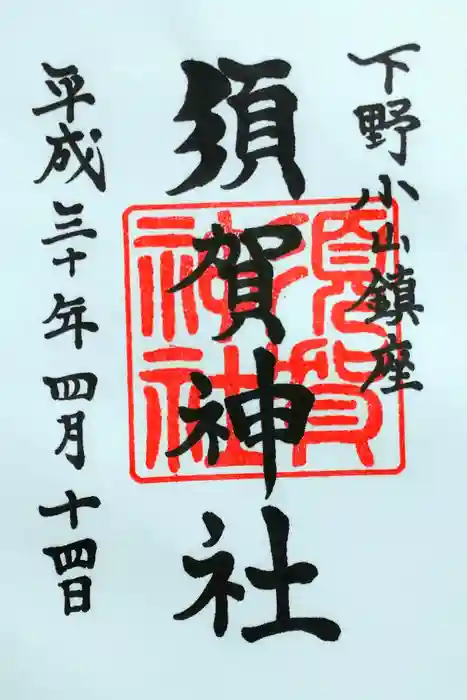 下野小山鎮座
須賀神社
平成三十年四月十四日
須賀
神社